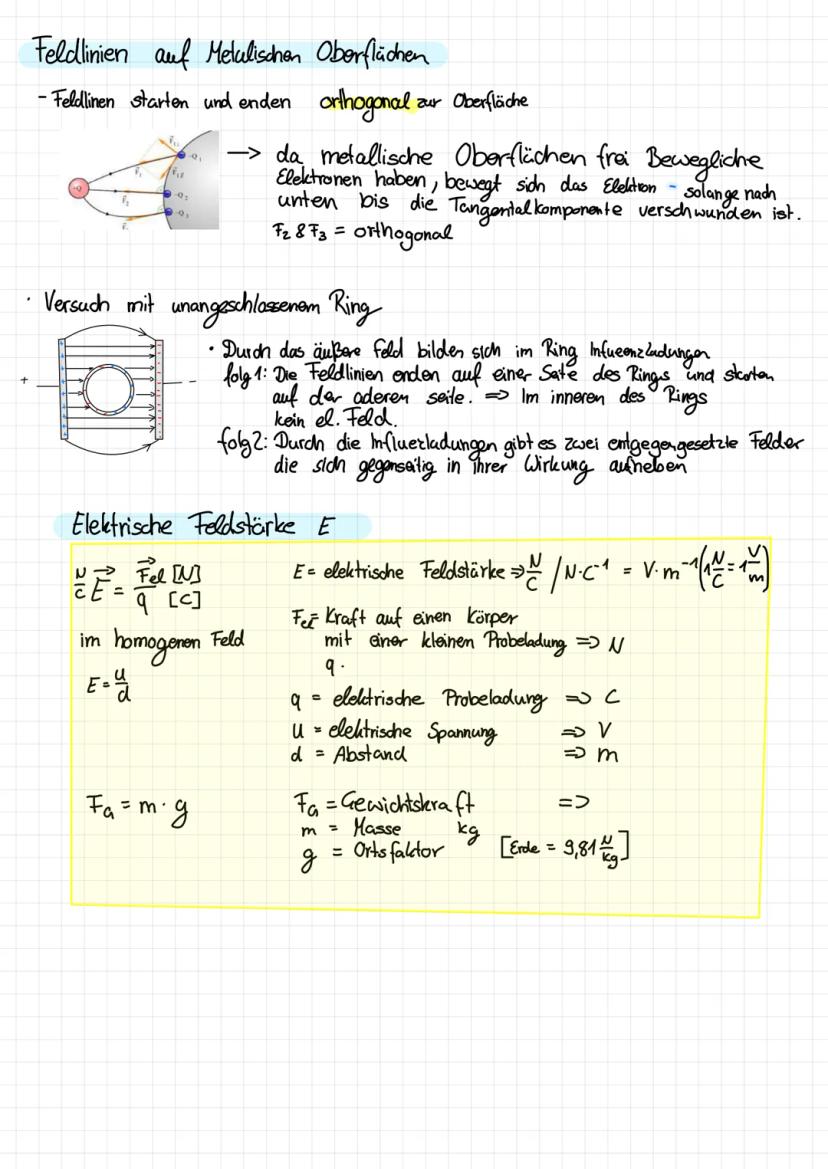 Feldlinien auf Metalischen Oberflächen
- Feldlinen starten und enden orthogonal zur Oberfläche
→ da metallische Oberflächen frei Bewegliche
Elektronen haben, bewegt sich das Elektron - solange nach
unten bis die Tangentalkomponente verschwunden ist.
F₂ & F₃ = orthogonal
-Q₁
-Q₂
-Q₃
F₁
F₂
• Versuch mit unangeschlossenem Ring
+ -
• Durch das äußere Feld bilden sich im Ring Influenzladungen
folg 1: Die Feldlinien enden auf einer Seite des Rings und starten
auf der aderen seite. => Im inneren des Rings
kein el. Feld.
folg 2: Durch die Influezladungen gibt es zwei entgegengesetzte Felder
die sich gegenseitig in ihrer Wirkung aufheben
Elektrische Feldstärke E
N/C E⃗ = F⃗el [N] / q [C]
E = elektrische Feldstärke => N/C / N·C⁻¹ = V·m⁻¹ (1 N/C = 1 V/m)
im homogenen Feld
E = u/d
Fel = Kraft auf einen Körper
mit einer kleinen Probeladung => N
q.
q = elektrische Probeladung => C
U = elektrische Spannung => V
d = Abstand => m
FG = m · g
FG = Gewichtskraft =>
m = Masse kg
g = Ortsfaktor [Erde = 9,81 N/kg]